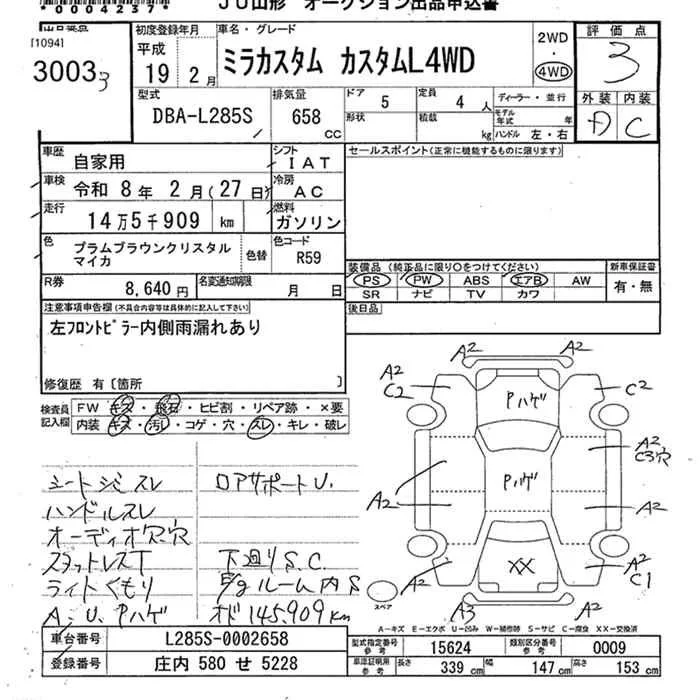 *0004237*
JU山形 オークション出品申込書
出品番号
[1094]
3003 3
初度登録年月
平成
19 年 2 月
車名・グレード
ミラカスタム カスタムL4WD
2WD
・
4WD
評価点
3
型式
DBA-L285S
排気量
658
CC
ドア
5
形状
定員
4 人
積載
kg
ディーラー・並行
モデル年式 年
ハンドル 左・右
外装 内装
D C
車歴
自家用
シフト
IAT
車検
令和 8 年 2 月(27 日)
冷房
AC
走行
14万5千909 km
燃料
ガソリン
色
プラムブラウンクリスタル
マイカ
色替
色コード
R59
R券
8,640 円
名変通知期限
月 日
セールスポイント(正常に機能するものに限ります)
装備品 (純正品に限り○をつけてください)
PS PW ABS エアB AW
SR ナビ TV カワ
新車保証書
有・無
後日品
注意事項申告欄(不具合内容等は具体的に記入して下さい)
左フロントピラー内側雨漏れあり
修復歴 有〔箇所 〕
検査員記入欄
FW キズ・飛石・ヒビ割・リペア跡・×要
内装 キズ・汚レ・コゲ・穴・スレ・キレ・破レ
シートシミスレ
ロアサポートU.
ハンドルスレ
オーディオ欠.穴
スタットレスT
下廻りS.C.
ライトくもり
E/gルーム内S
A.U.Pハゲ
オド145.909km
A2 A2
A2
C2
Pハゲ
C2
A2
C3穴
A2
Pハゲ
A2
A2
XX
A2
C1
A3 A2
スペア
A-キズ E-エクボ U-凹み W-補修跡 S-サビ C-腐食 XX-交換済
車台番号
L285S-0002658
登録番号
庄内 580 せ 5228
型式指定番号
参考
15624
類別区分番号
参考
0009
車庫証明用
参考
長さ 339 cm
幅 147 cm
高さ 153 cm